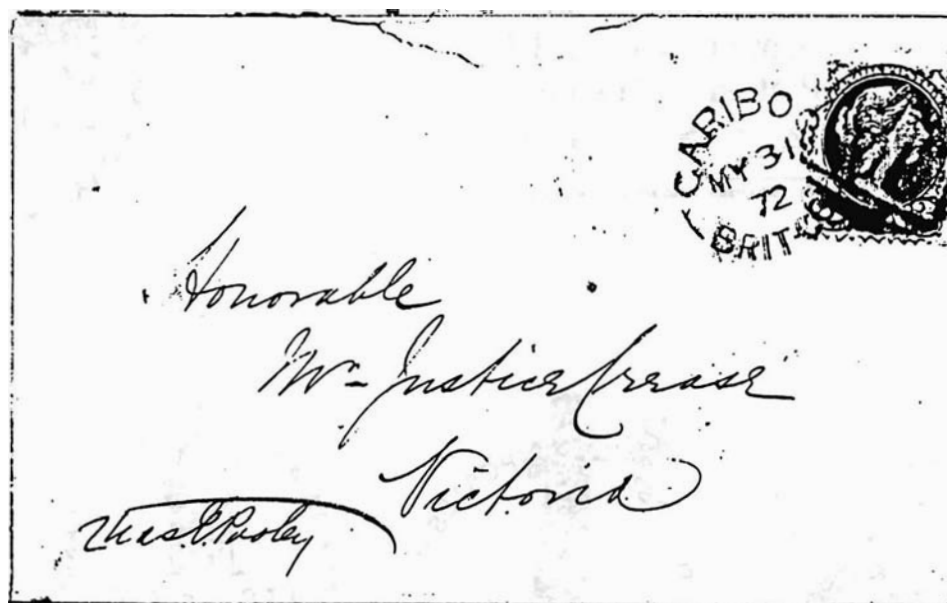 CARIBO
MY 31
72
BRIT
Honorable
Mr- Justice Crease
Victoria
Chas. E. Pooley